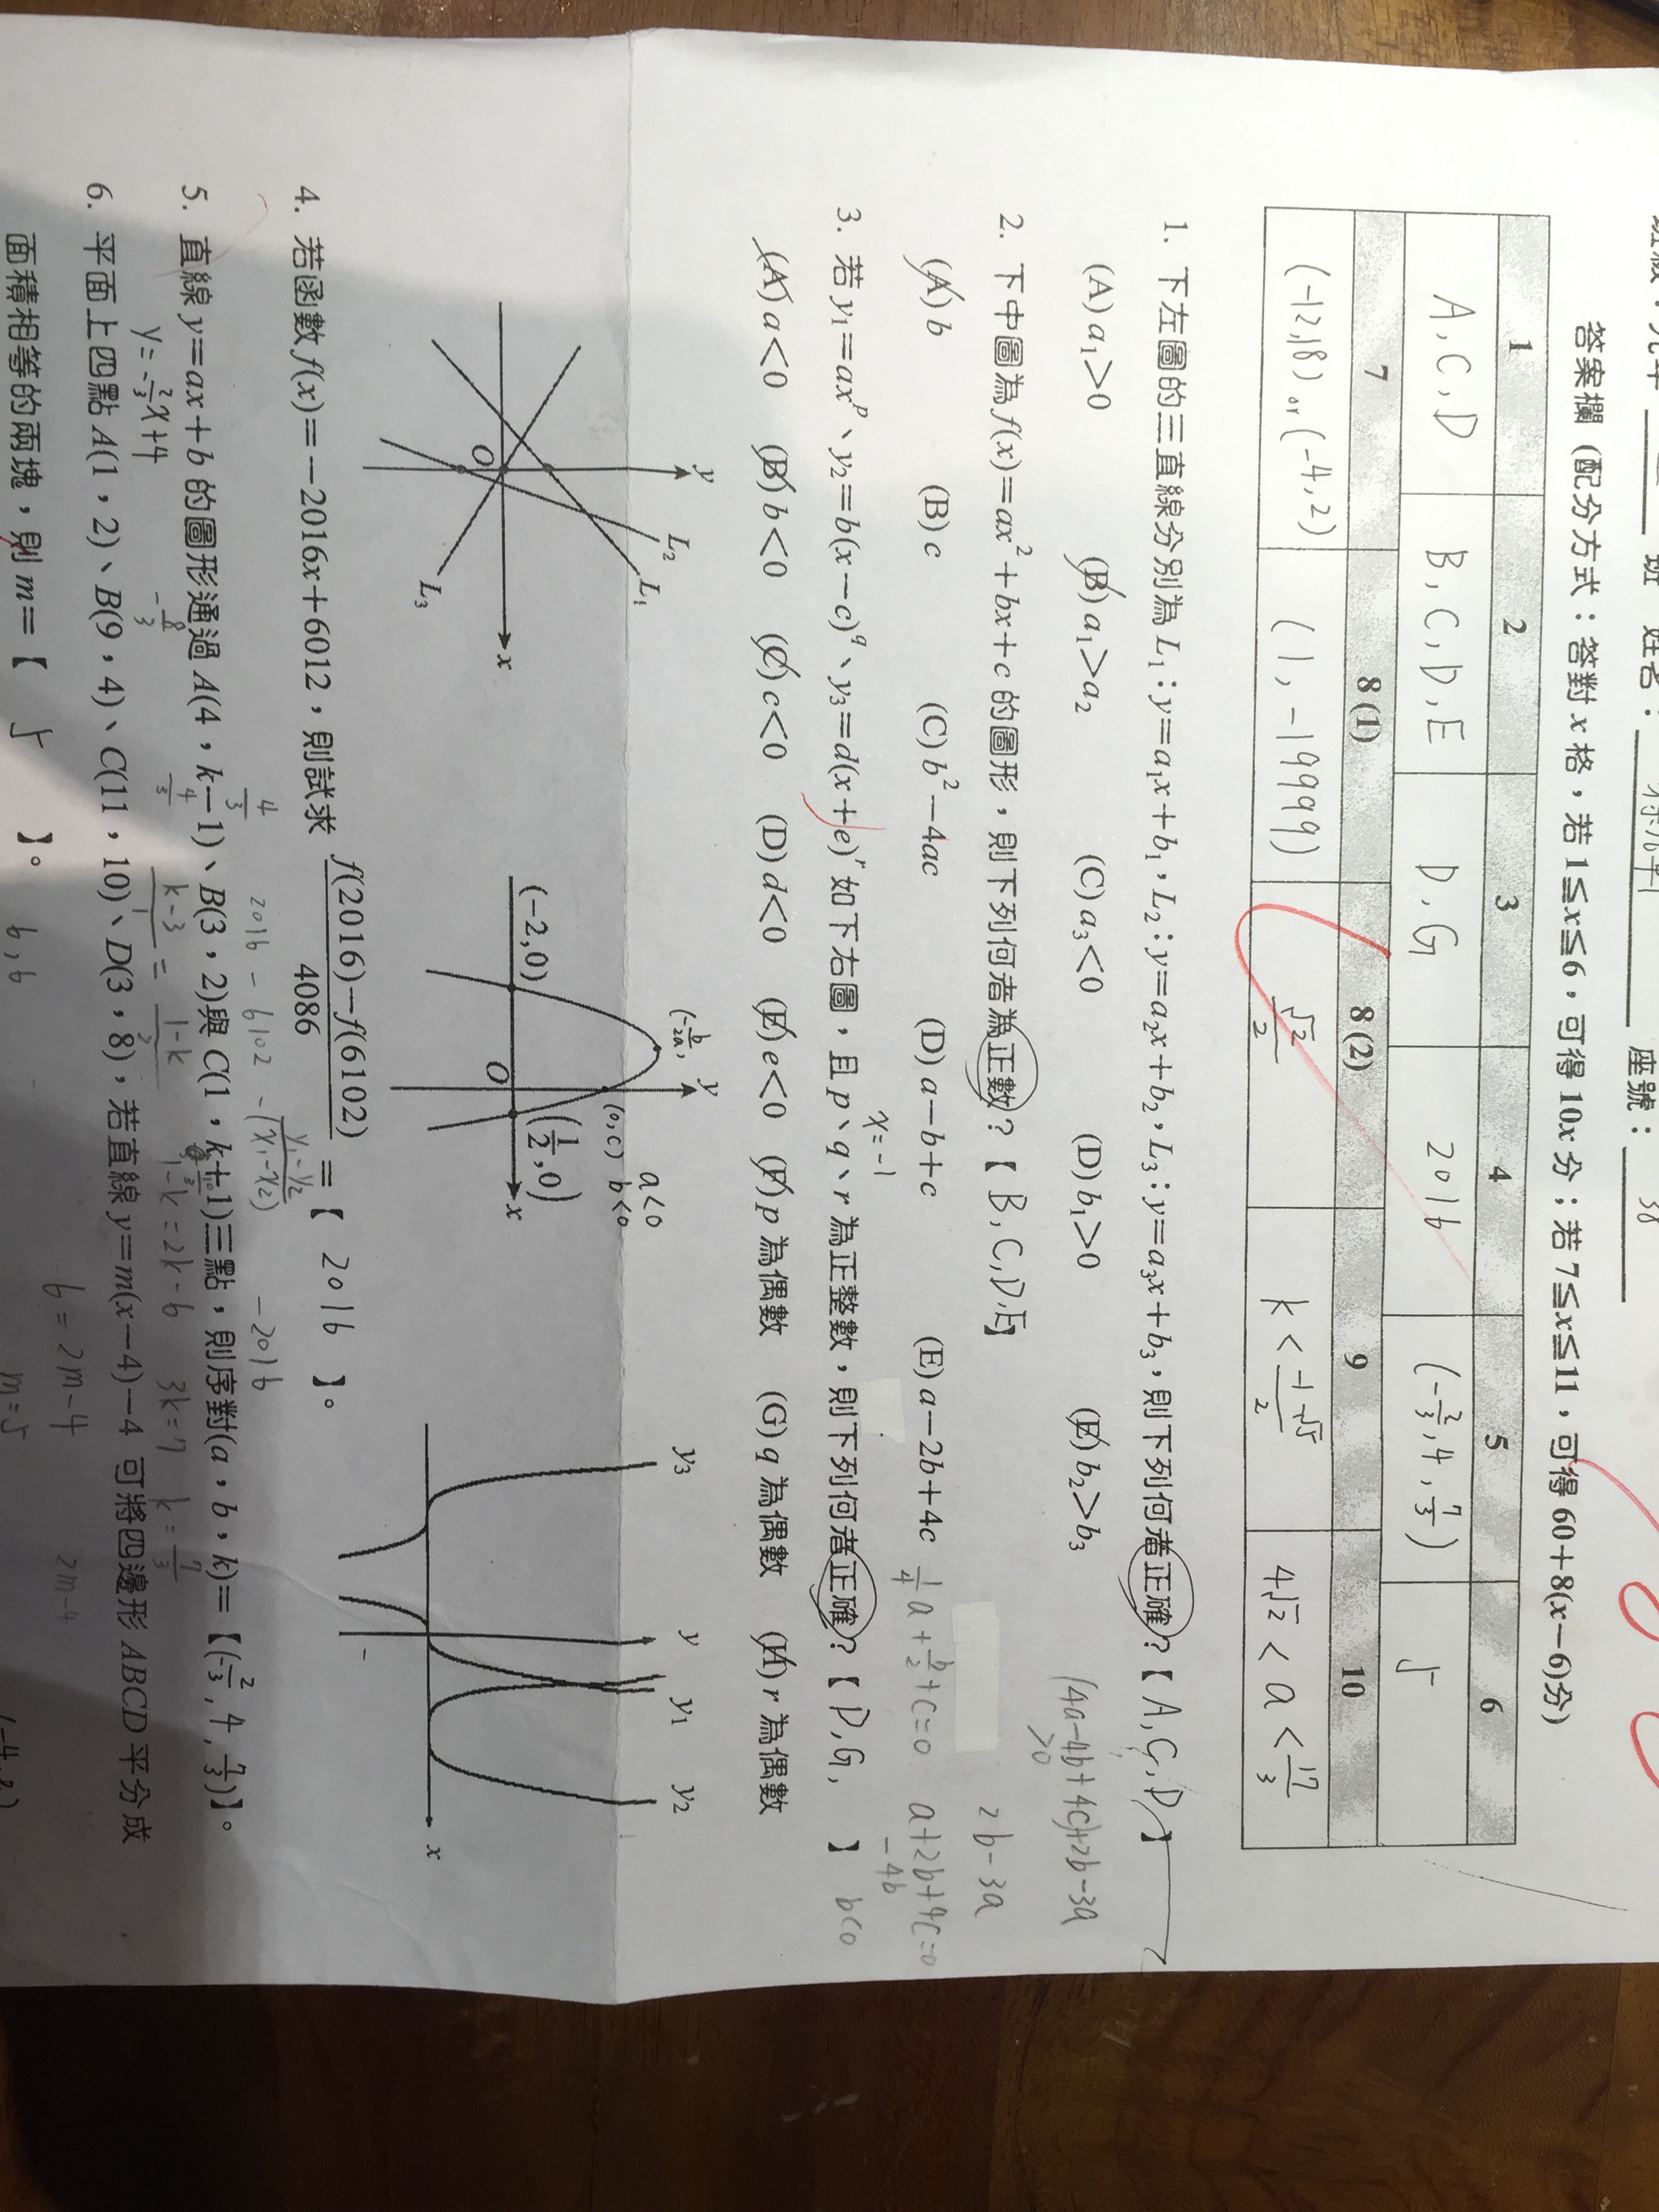 班 姓名： 座號： 38
答案欄（配分方式：答對 x 格，若 1≦x≦6，可得 10x 分；若 7≦x≦11，可得 60+8(x−6)分）
1 2 3 4 5 6
A, C, D B, C, D, E D, G 2016 (-2/3, 4, 7/3) 5
7 8(1) 8(2) 9 10
(-12,18) or (-4,2) (1, -19999) √2/2 k < (-1-√5)/2 4√2 < a < 17/3
1. 下左圖的三直線分別為 L₁：y＝a₁x＋b₁，L₂：y＝a₂x＋b₂，L₃：y＝a₃x＋b₃，則下列何者正確？【 A, C, D 】
(A) a₁＞0 (B) a₁＞a₂ (C) a₃＜0 (D) b₁＞0 (E) b₂＞b₃
(4a-4b+4c)+2b-3a
>0
2. 下中圖為 f(x)＝ax²＋bx＋c 的圖形，則下列何者為正數？【 B, C, D, E】
2b-3a
(A) b (B) c (C) b²－4ac (D) a－b＋c (E) a－2b＋4c
1/4 a + b/2 + c = 0 a+2b+4c=0
-4b
x=-1
3. 若 y₁＝axᵖ、y₂＝b(x－c)^q、y₃＝d(x＋e)^r 如下右圖，且 p、q、r 為正整數，則下列何者正確？【 D, G, 】
b<0
(A) a＜0 (B) b＜0 (C) c＜0 (D) d＜0 (E) e＜0 (F) p 為偶數 (G) q 為偶數 (H) r 為偶數
y
L₂
L₁
O
x
L₃
(-b/2a,
y
a<0
b<0
(0,c)
(−2,0)
(1/2,0)
O
x
y₃
y
y₁
y₂
x
4. 若函數 f(x)＝－2016x＋6012，則試求 (f(2016)－f(6102))/4086 ＝【 2016 】。
2016 - 6102 -2016
5. 直線 y＝ax＋b 的圖形通過 A(4，k－1)、B(3，2)與 C(1，k＋1)三點，則序對(a，b，k)＝【(-2/3, 4, 7/3)】。
y = -2/3 x+4
1-k = 2k-6 3k=7 k=7/3
6. 平面上四點 A(1，2)、B(9，4)、C(11，10)、D(3，8)，若直線 y＝m(x－4)－4 可將四邊形 ABCD 平分成
面積相等的兩塊，則 m＝【 5 】。
6, 6
6 = 2m-4
2m-4
m=5